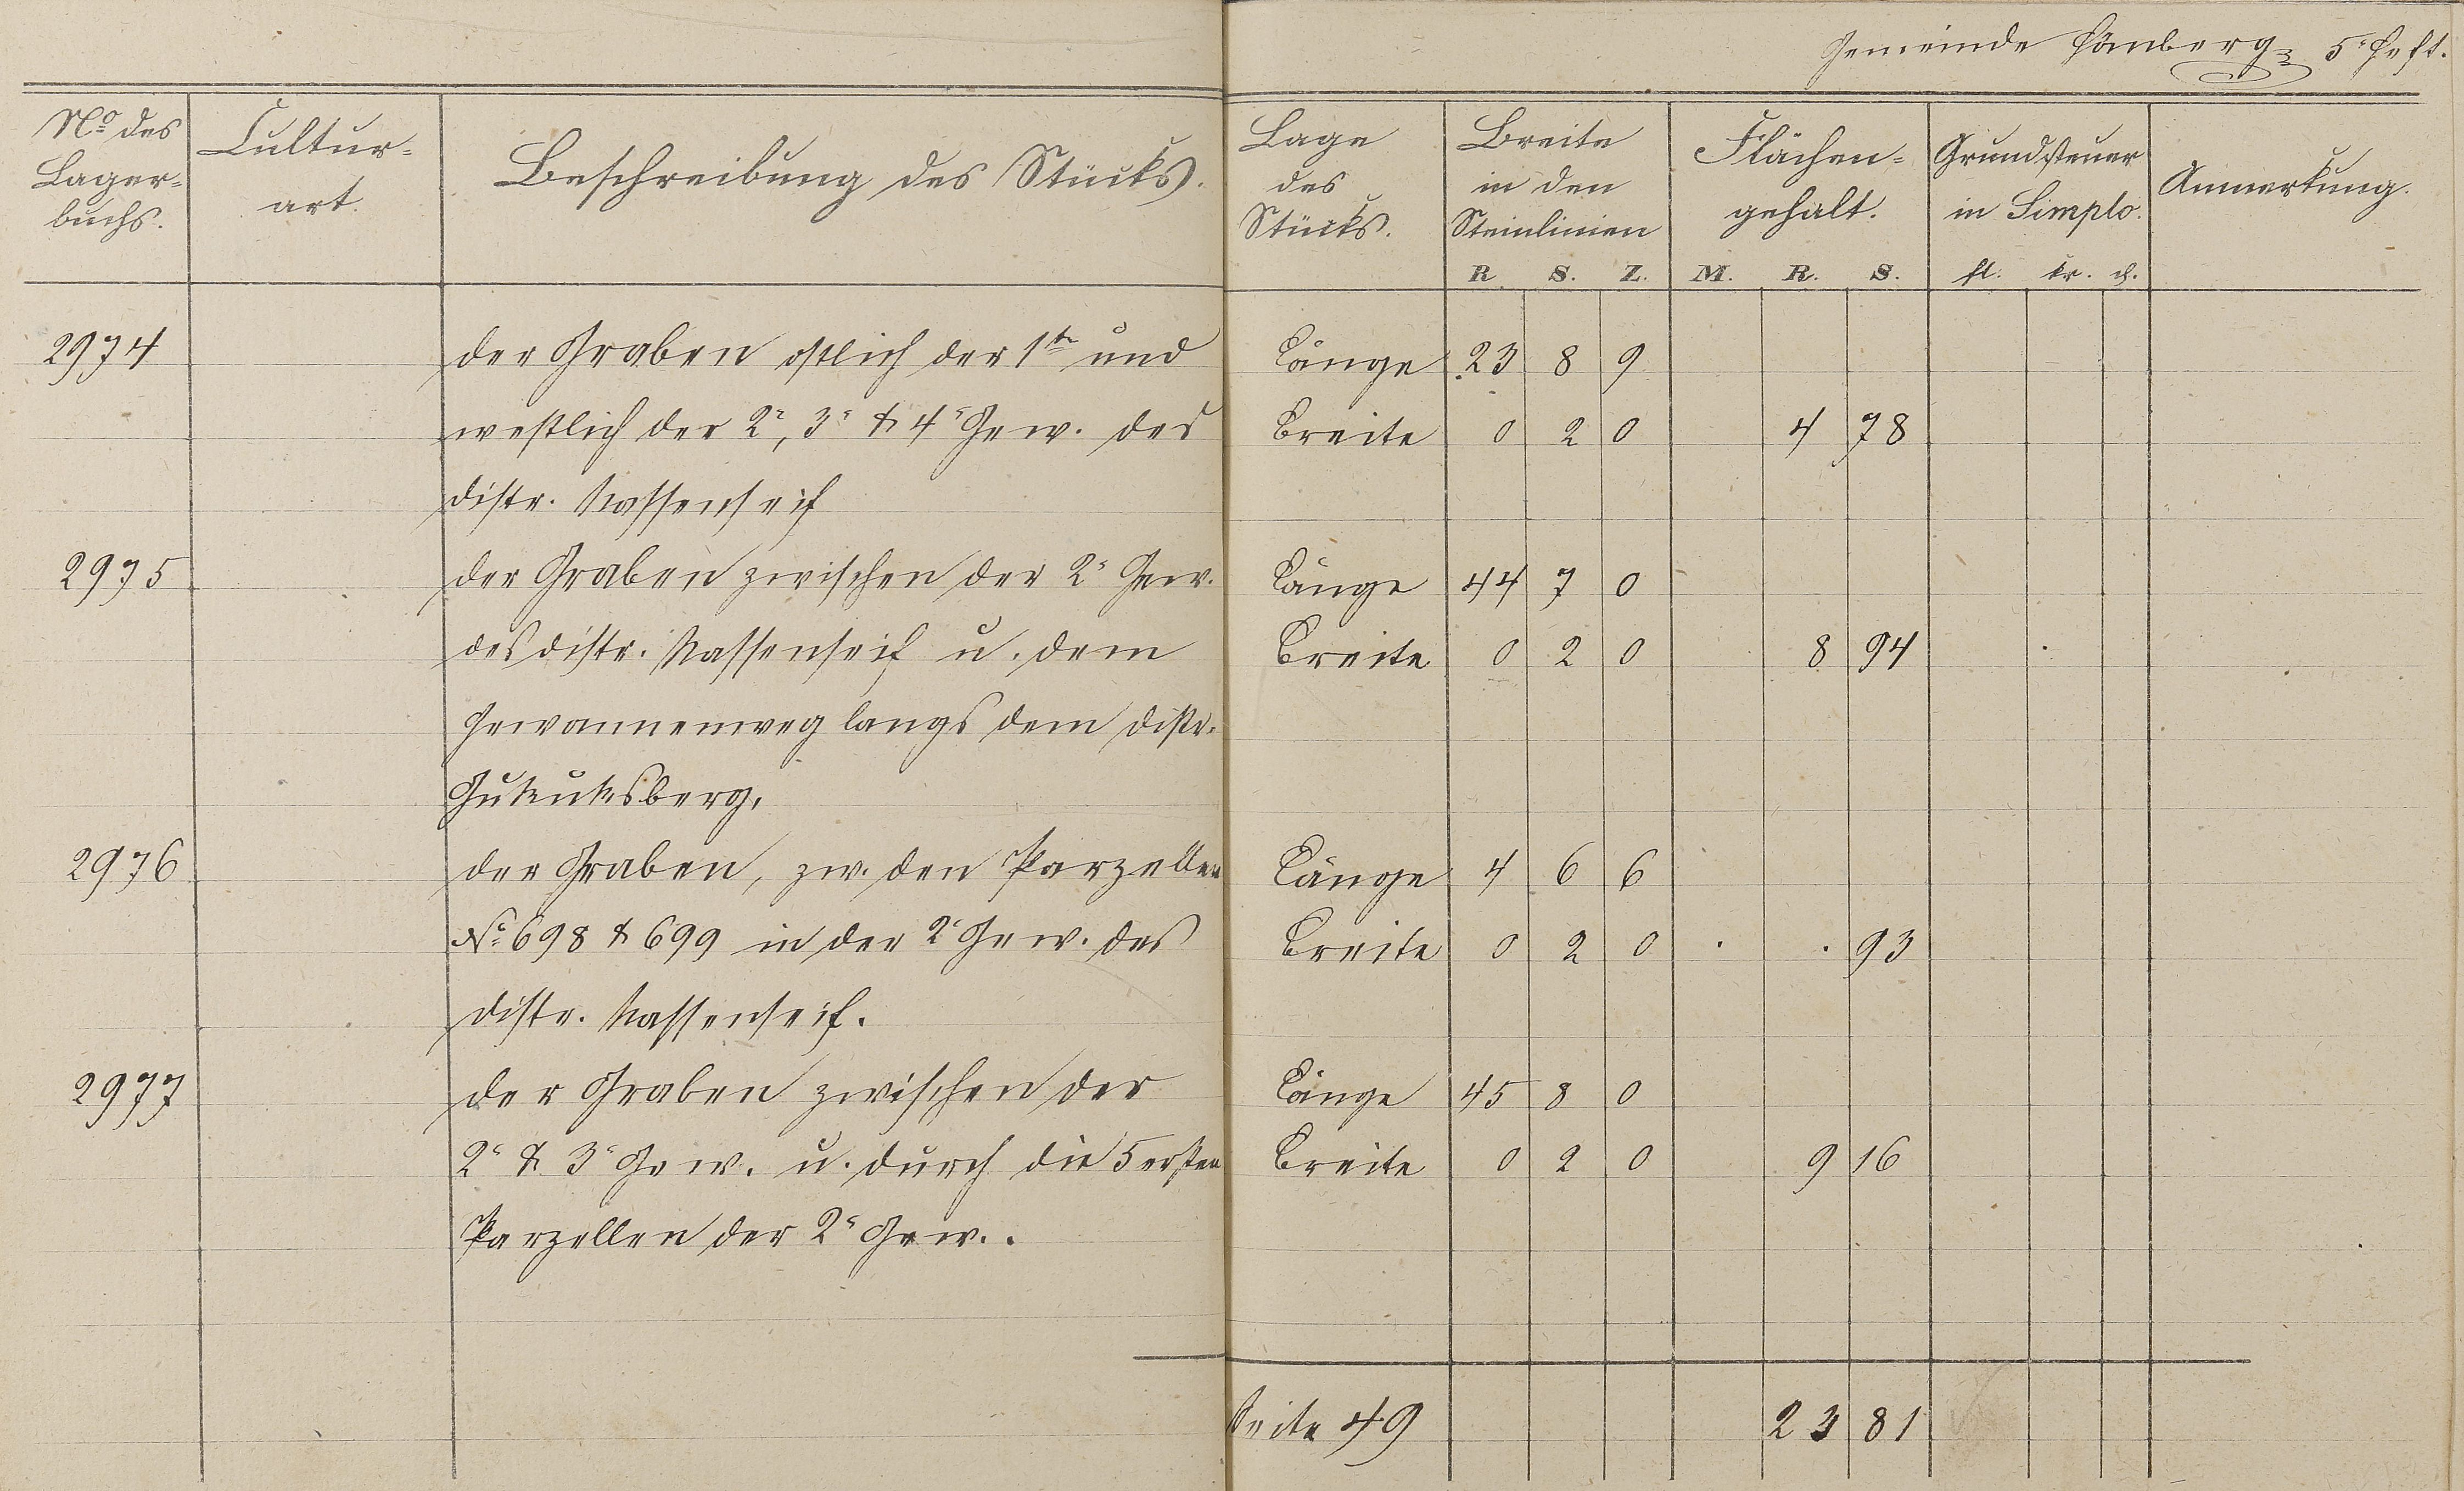 Gemeinde Hönberg 5s Heft.
No des Lager-buchs.
Cultur-art.
Beschreibung des Stücks.
Lage des Stücks.
Breite in den Steinlinien
R. S. Z.
Flächen-gehalt.
M. R. S.
Grundsteuer in Simplo.
fl. kr. d.
Anmerkung.
2974 der Graben ostlich der 1tn und Länge 23 8 9
westlich der 2n, 3n & 4n Gew. des Breite 0 2 0 4 78
distr. Nassenseif
2975 der Graben zwischen der 2n Gew. Länge 44 7 0
des distr. Nassenseif u. dem Breite 0 2 0 8 94
Gewannenweg langs dem distr.
Gukuksberg,
2976 der Graben, zw. den Parzellen Länge 4 6 6
No 698 & 699 in der 2n Gew. des Breite 0 2 0 . . 93
distr. Nassenseif.
2977 der Graben zwischen der Länge 45 8 0
2n & 3n Gew. u. durch die 5 ersten Breite 0 2 0 9 16
Parzellen der 2n Gew..
Seite 49 23 81